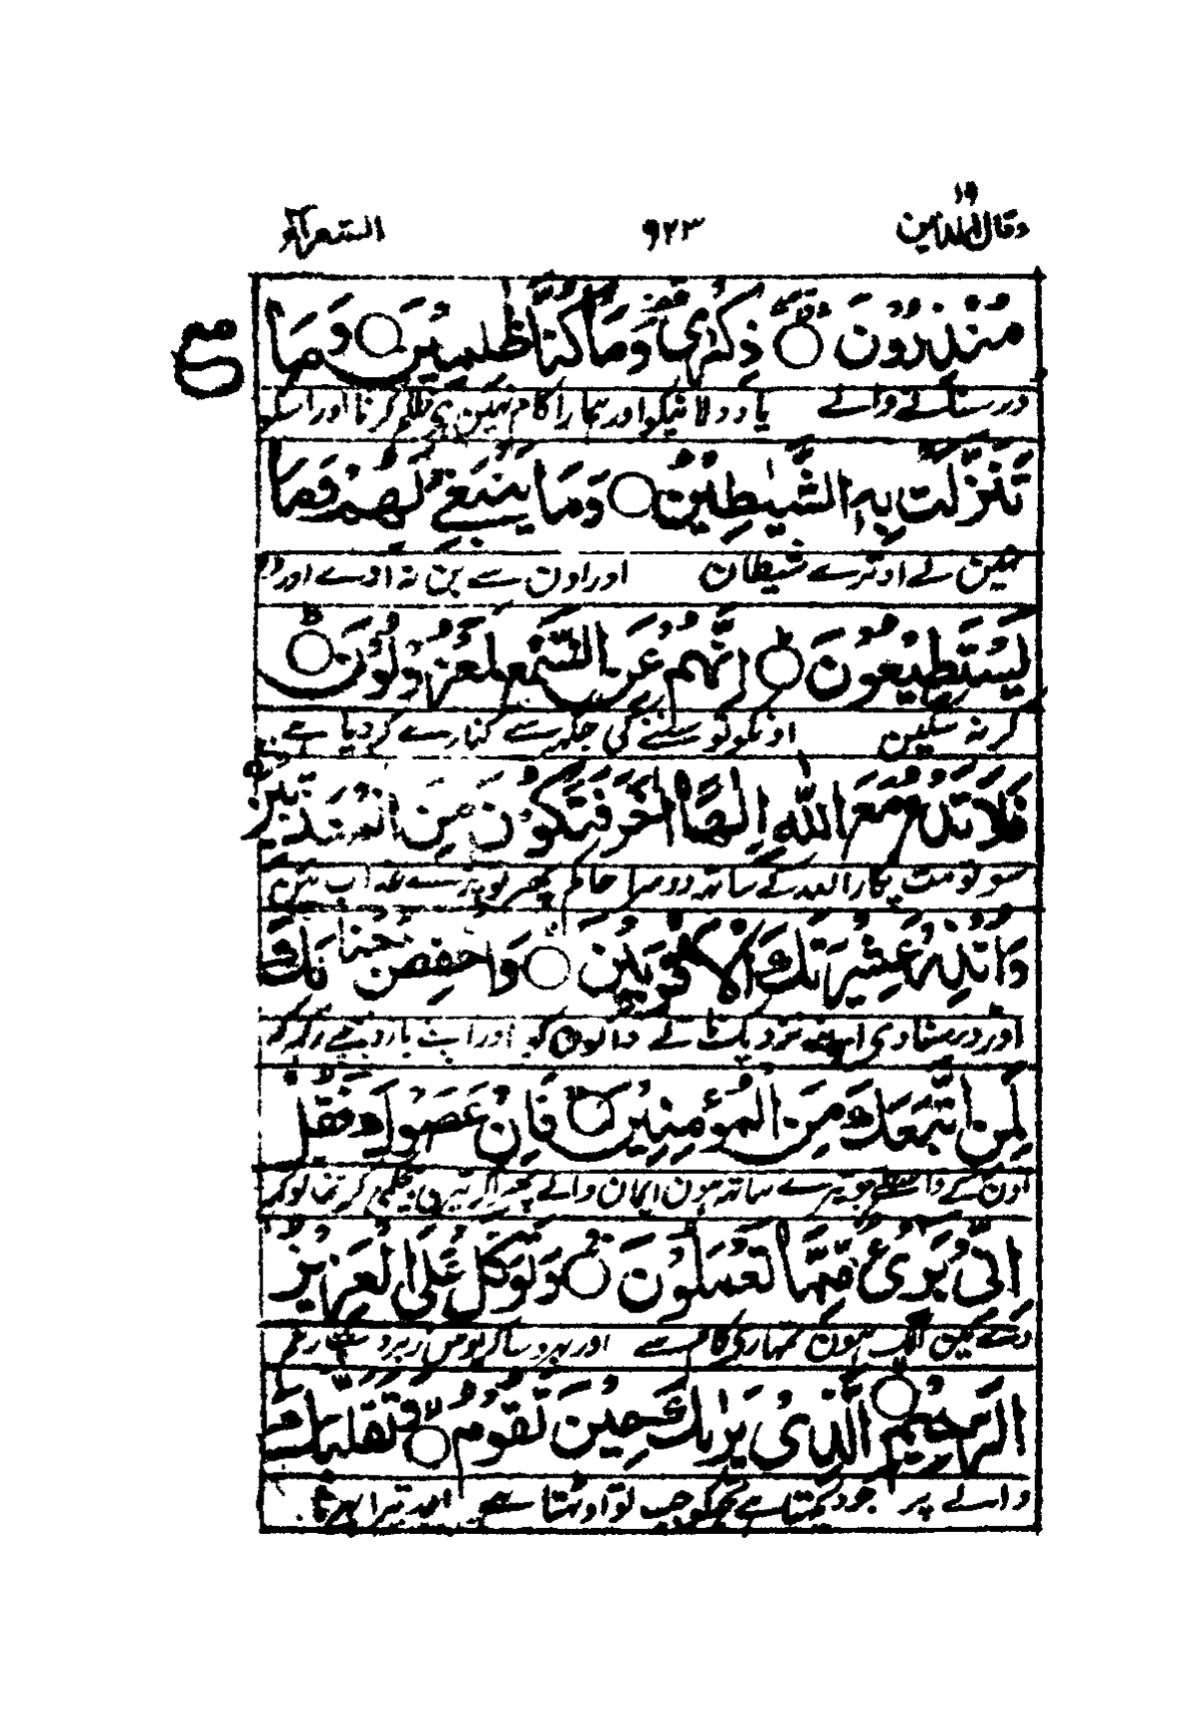 وقال الذين ۱۹ ۹۲۳ الشعرآء
مُنْذِرُوْنَ ○ ذِكْرٰى وَمَا كُنَّا ظٰلِمِيْنَ ○ وَمَا
ڈر سنانے والے یاد دلانیکو اور ہمارا کام نہین ہی ظلم کرنا اور اسکو
تَنَزَّلَتْ بِهِ الشَّيٰطِيْنُ ○ وَمَا يَنْبَغِيْ لَهُمْ وَمَا
نہین لے اوترے شیطان اور اون سے بن نہ آوے اور
يَسْتَطِيْعُوْنَ ○ اِنَّهُمْ عَنِ السَّمْعِ لَمَعْزُوْلُوْنَ ○
کر نہ سکین اونکو تو سننے کی جگہہ سے کنارے کر دیا ہے
فَلَا تَدْعُ مَعَ اللّٰهِ اِلٰهًا اٰخَرَ فَتَكُوْنَ مِنَ الْمُعَذَّبِيْنَ
سو تو مت پکار اللہ کے ساتھ دوسرا حاکم پھر تو پڑے عذاب مین
وَاَنْذِرْ عَشِيْرَتَكَ الْاَقْرَبِيْنَ ○ وَاخْفِضْ جَنَاحَكَ
اور ڈر سنا دی اپنے نزدیک ناتے والون کو اور اپنے بازو نیچے رکھ
لِمَنِ اتَّبَعَكَ مِنَ الْمُؤْمِنِيْنَ ○ فَاِنْ عَصَوْكَ فَقُلْ
اون کے واسطے جو تیرے ساتھ ہون ایمان والے پھر اگر تیری بیحکمی کرین تو کہہ
اِنِّيْ بَرِيْٓءٌ مِّمَّا تَعْمَلُوْنَ ○ وَتَوَكَّلْ عَلَى الْعَزِيْزِ
الگ ہون تمہاری کام سے اور بہروسا کر اوس زبردست رحم
الرَّحِيْمِ ○ الَّذِيْ يَرٰىكَ حِيْنَ تَقُوْمُ ○ وَتَقَلُّبَكَ
والے پر جو دیکھتا ہے تجھکو جب تو اوٹھتا ہے اور تیرا پھرنا